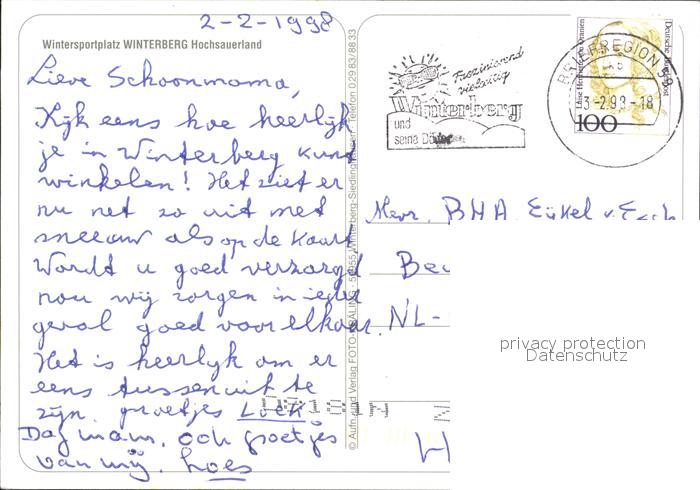 2-2-1998
Wintersportplatz WINTERBERG Hochsauerland
Lieve Schoonmama,
Kijk eens hoe heerlijk
je in Winterberg kunt
winkelen! Het ziet er
nu net zo uit met
sneeuw als op de kaart
Wordt u goed verzorgd
nou wij zorgen in ieder
geval goed voor elkaar.
Het is heerlijk om er
eens tussenuit te
zijn. groetjes Loek
Dag mam, ook groetjes
van mij. Loes
© Aufn. und Verlag FOTO Winterberg-Siedlinghausen Telefon 02983/8833
Faszinierend
vielseitig
Winterberg
und
seine Dörfer
BRIEFREGION
-2.98-18
Deutsche Bundespost
100
Mevr. BHA
Be
NL-
privacy protection
Datenschutz